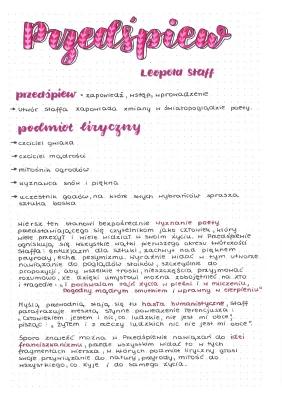 Przedśpiew
Leopold Staff
przedśpiew - zapowiedź, wstęp, wprowadzenie
→ utwór Staffa zapowiada zmiany w światopoglądzie poety.
podmiot liryczny
→ czciciel gwiazd
→ czciciel mądrości
→ miłośnik ogrodów
→ wyznawca snów i piękna
→ uczestnik godów, na które swych wybrańców sprasza
sztuka boska
Wiersz ten stanowi bezpośrednie wyznanie poety
przedstawiającego się czytelnikom jako człowiek, który
wiele przeżył i wiele widział w swoim życiu. W Przedśpiewie
ogniskują się wszystkie wątki pierwszego okresu twórczości
Staffa: entuzjazm dla sztuki, zachwyt nad pięknem
przyrody, echa pesymizmu. Wyraźnie widać w tym utworze
nawiązanie do poglądów stoików, szczególnie do
propozycji, aby wszelkie troski, nieszczęścia, przyjmować
rozumowo, że dzięki umysłowi można zobojętnieć na zło
i tragedie: „I pochwalam tajń życia w pieśni i w milczeniu,
Pogodny mądrym smutkiem i wprawny w cierpieniu”
Myślą przewodnią stają się tu hasła humanistyczne, Staff
parafrazuje zresztą słynne powiedzenie Terencjusza:
„Człowiekiem jestem i nic, co ludzkie, nie jest mi obce”,
pisząc: „Żyłem i z rzeczy ludzkich nic nie jest mi obce”.
Sporo znaleźć można w Przedśpiewie nawiązań do idei
franciszkanizmu, przede wszystkim widać to w tych
fragmentach wiersza, w których podmiot liryczny głosi
swoje przywiązanie do natury, przyrody, miłość do
wszystkiego, co żyje i do samego życia.